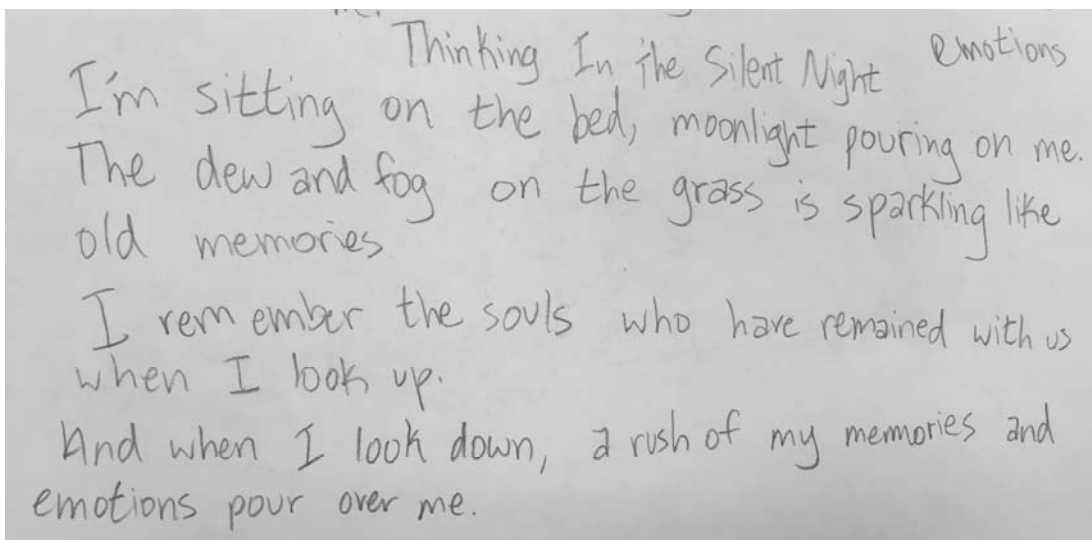 Thinking In the Silent Night emotions
I'm sitting on the bed, moonlight pouring on me.
The dew and fog on the grass is sparkling like
old memories
I remember the souls who have remained with us
when I look up.
And when I look down, a rush of my memories and
emotions pour over me.